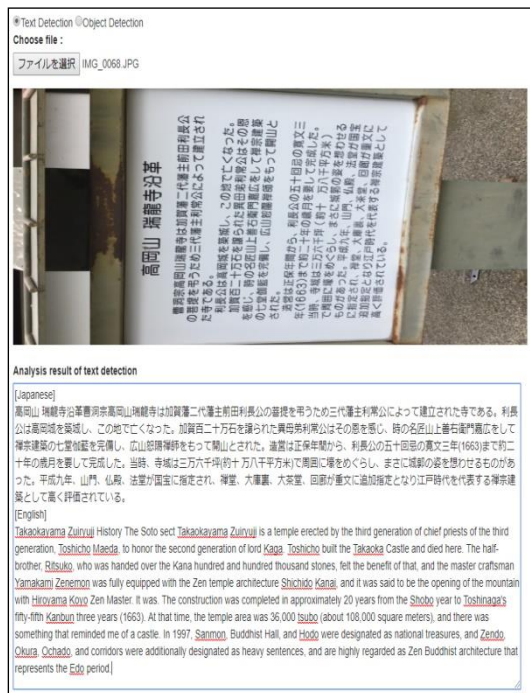 Text Detection Object Detection
Choose file :
ファイルを選択 IMG_0068.JPG
高岡山 瑞龍寺沿革
曹洞宗高岡山瑞龍寺は加賀藩二代藩主前田利長公
の菩提を弔うため三代藩主利常公によって建立され
た寺である。
利長公は高岡城を築城し、この地で亡くなった。
加賀百二十万石を譲られた異母弟利常公はその恩
を感じ、時の名匠山上善右衛門嘉広をして禅宗建築
の七堂伽藍を完備し、広山恕陽禅師をもって開山と
された。
造営は正保年間から、利長公の五十回忌の寛文三
年(1663)まで約二十年の歳月を要して完成した。
当時、寺域は三万六千坪(約十万八千平方米)
で周囲に壕をめぐらし、まさに城郭の姿を想わせる
ものがあった。平成九年、山門、仏殿、法堂が国宝
に指定され、禅堂、大庫裏、大茶堂、回廊が重文に
追加指定となり江戸時代を代表する禅宗建築として
高く評価されている。
Analysis result of text detection
[Japanese]
高岡山 瑞龍寺沿革曹洞宗高岡山瑞龍寺は加賀藩二代藩主前田利長公の菩提を弔うため三代藩主利常公によって建立された寺である。利長
公は高岡城を築城し、この地で亡くなった。加賀百二十万石を譲られた異母弟利常公はその恩を感じ、時の名匠山上善右衛門嘉広をして
禅宗建築の七堂伽藍を完備し、広山恕陽禅師をもって開山とされた。造営は正保年間から、利長公の五十回忌の寛文三年(1663)まで約二
十年の歳月を要して完成した。当時、寺域は三万六千坪(約十万八千平方米)で周囲に壕をめぐらし、まさに城郭の姿を想わせるものがあっ
た。平成九年、山門、仏殿、法堂が国宝に指定され、禅堂、大庫裏、大茶堂、回廊が重文に追加指定となり江戸時代を代表する禅宗建
築として高く評価されている。
[English]
Takaokayama Zuiryuji History The Soto sect Takaokayama Zuiryuji is a temple erected by the third generation of chief priests of the third
generation, Toshicho Maeda, to honor the second generation of lord Kaga. Toshicho built the Takaoka Castle and died here. The half-
brother, Ritsuko, who was handed over the Kana hundred and hundred thousand stones, felt the benefit of that, and the master craftsman
Yamakami Zenemon was fully equipped with the Zen temple architecture Shichido Kanai, and it was said to be the opening of the mountain
with Hiroyama Koyo Zen Master. It was. The construction was completed in approximately 20 years from the Shobo year to Toshinaga's
fifty-fifth Kanbun three years (1663). At that time, the temple area was 36,000 tsubo (about 108,000 square meters), and there was
something that reminded me of a castle. In 1997, Sanmon, Buddhist Hall, and Hodo were designated as national treasures, and Zendo,
Okura, Ochado, and corridors were additionally designated as heavy sentences, and are highly regarded as Zen Buddhist architecture that
represents the Edo period.